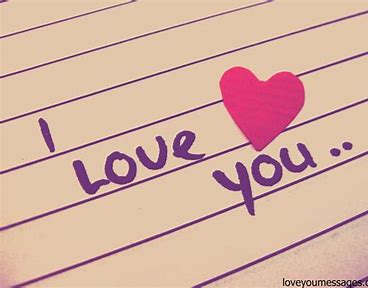 I LOVE
you..
loveyoumessages.c